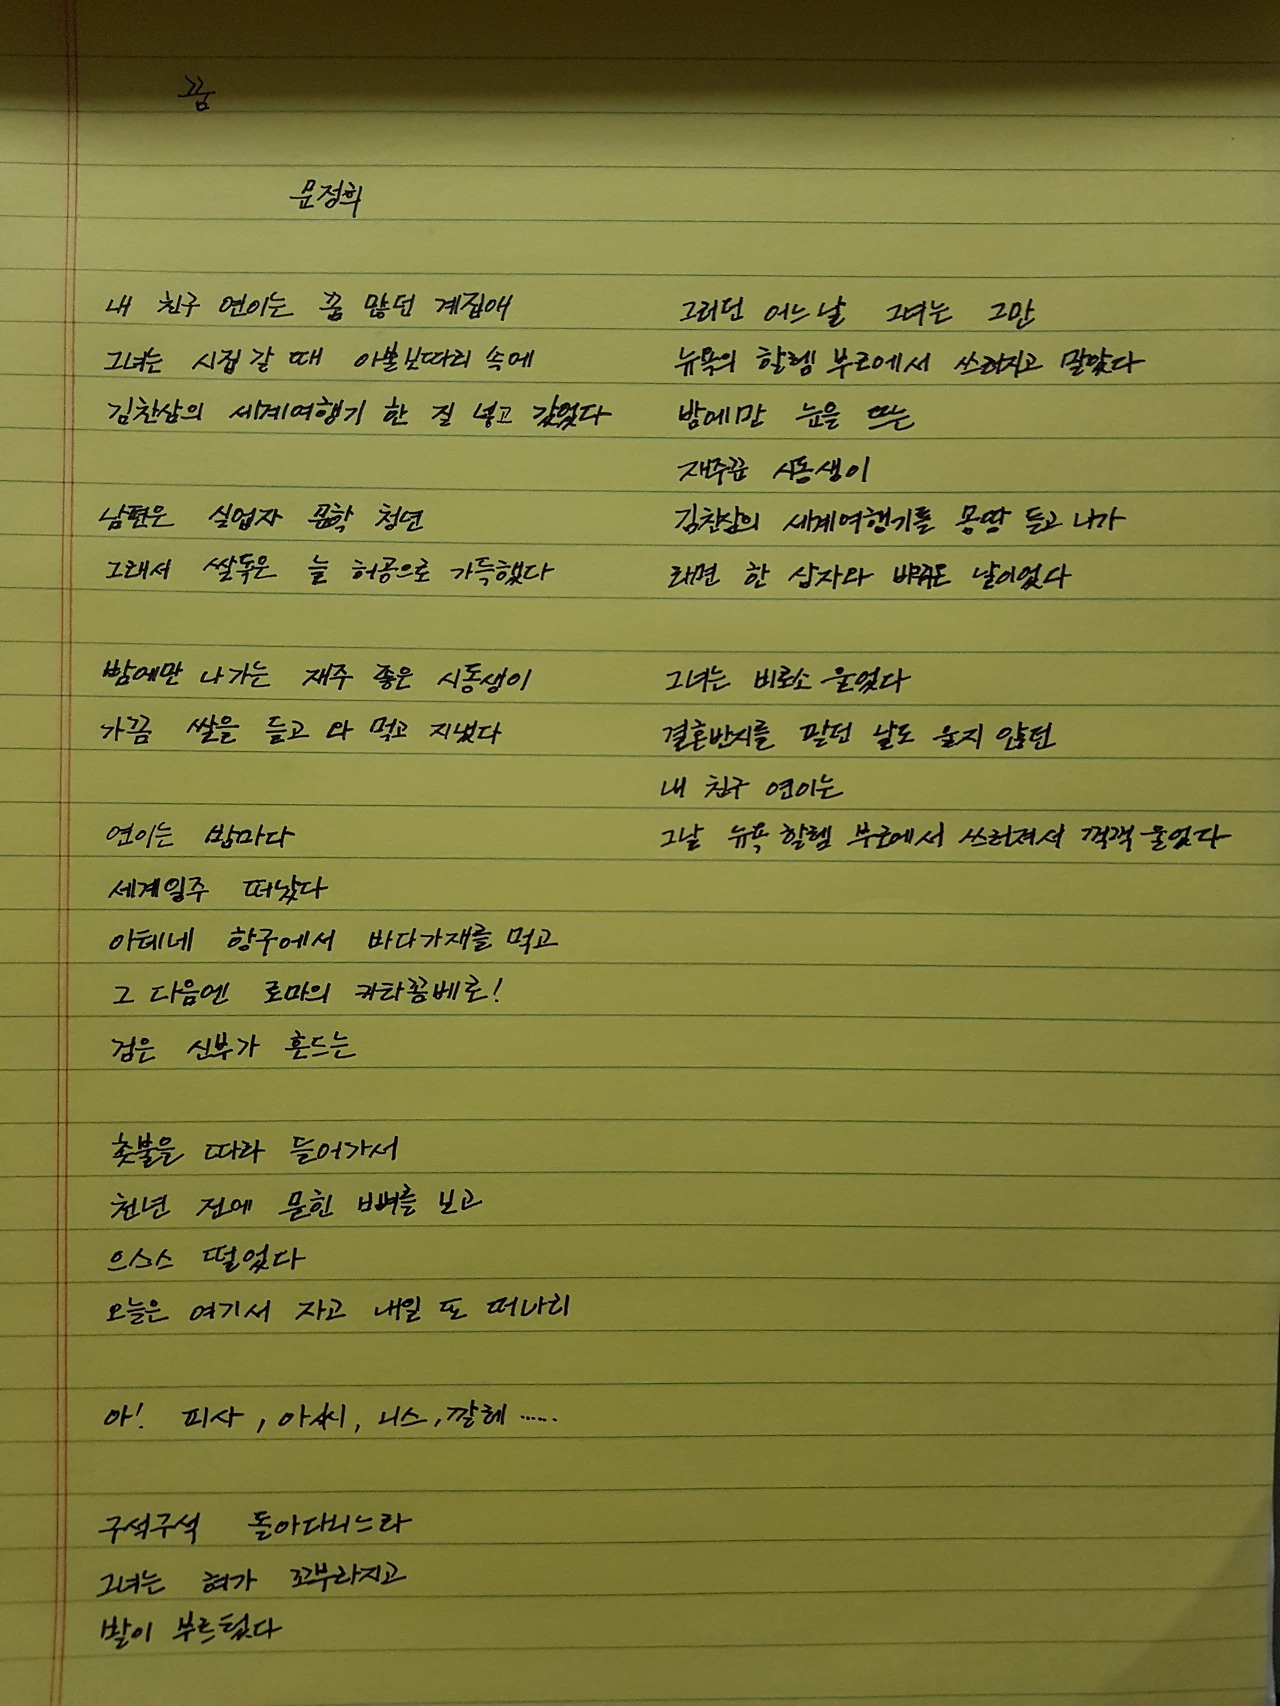 꿈
문정희
내 친구 연이는 꿈 많던 계집애
그녀는 시집 갈 때 이불보따리 속에
김찬삼의 세계여행기 한 질 넣고 갔었다
남편은 실업자 문학 청년
그래서 쌀독은 늘 허공으로 가득했다
밤에만 나가는 재주 좋은 시동생이
가끔 쌀을 들고 와 먹고 지냈다
연이는 밤마다
세계일주 떠났다
아테네 항구에서 바다가재를 먹고
그 다음엔 로마의 카타꼼베로!
검은 신부가 흔드는
촛불을 따라 들어가서
천년 전에 묻힌 뼈를 보고
으스스 떨었다
오늘은 여기서 자고 내일 또 떠나리
아! 피사, 아씨, 니스, 깔레 ……
구석구석 돌아다니느라
그녀는 혀가 꼬부라지고
발이 부르텄다
그러던 어느날 그녀는 그만
뉴욕의 할렘 부근에서 쓰러지고 말았다
밤에만 눈을 뜨는
재주꾼 시동생이
김찬삼의 세계여행기를 몽땅 들고 나가
라면 한 상자와 바꿔온 날이었다
그녀는 비로소 울었다
결혼반지를 팔던 날도 울지 않던
내 친구 연이는
그날 뉴욕 할렘 부근에서 쓰러져서 꺽꺽 울었다